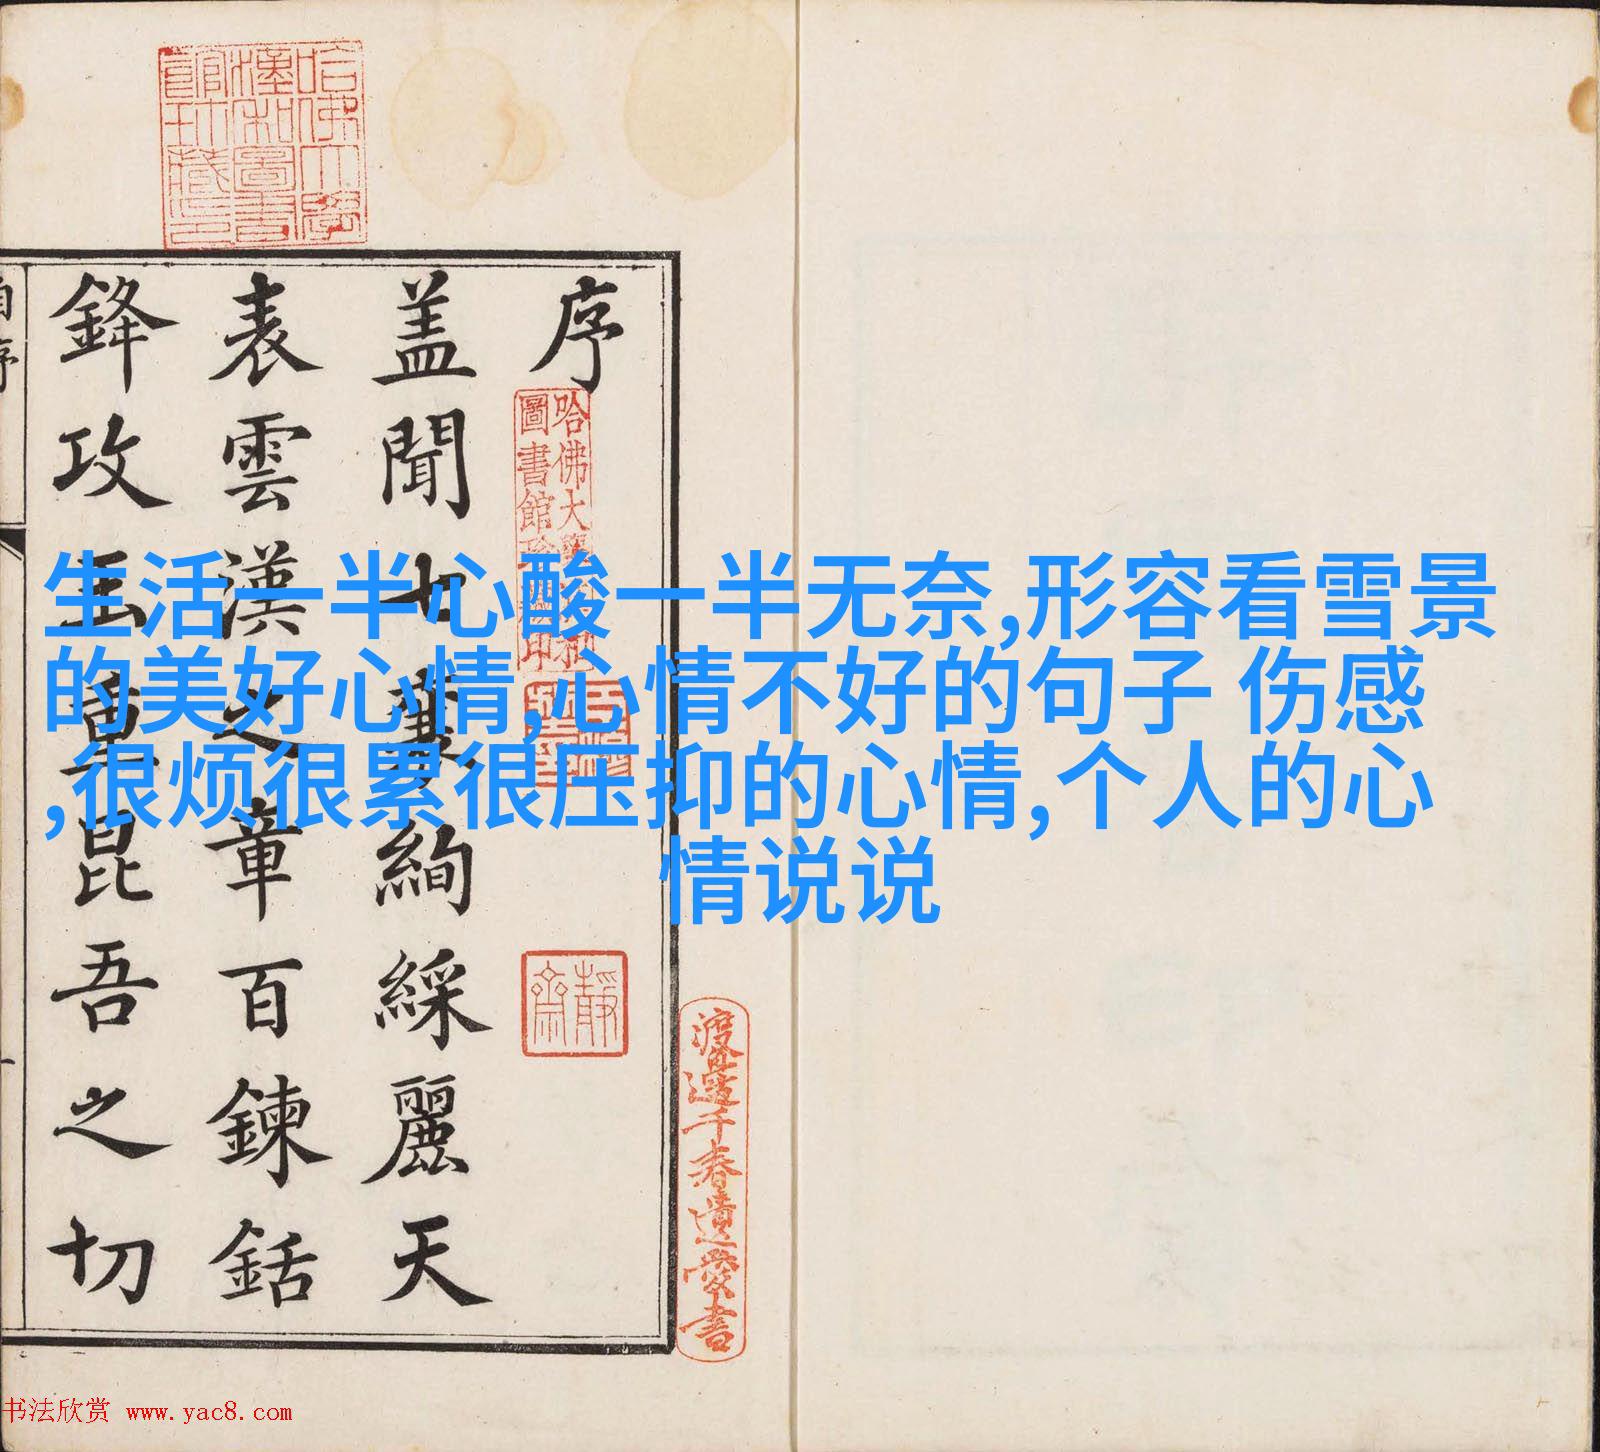 生活一半心酸一半无奈,形容看雪景
的美好心情,心情不好的句子 伤感
,很烦很累很压抑的心情,个人的心
情说说
序
蓋聞七襄絢綵麗天
表雲漢之章百鍊銛
鋒攻玉重昆吾之切
自序
哈佛大學漢和圖書館珍藏印
靜齋
渡邊千春遺愛書
书法欣赏 www.yac8.com